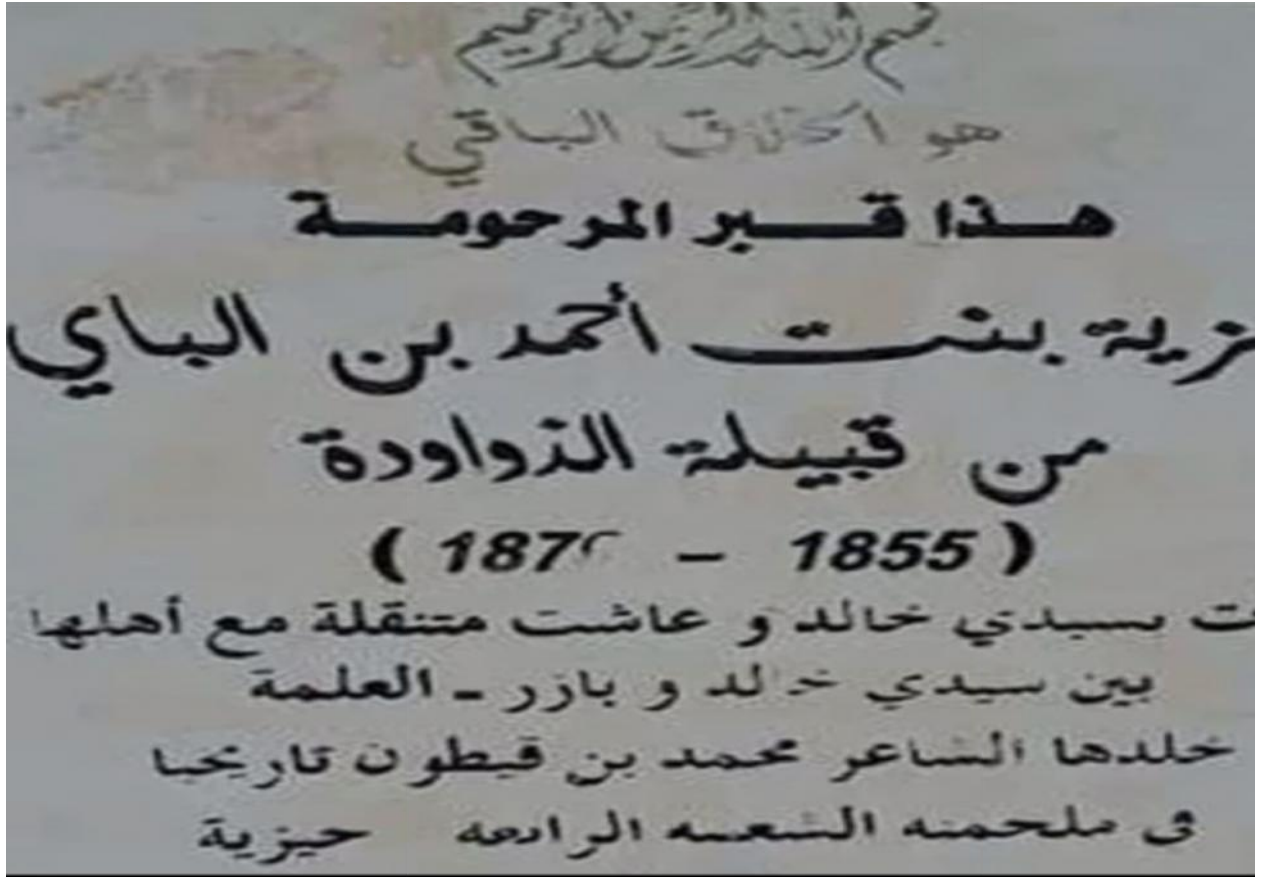 بسم الله الرحمن الرحيم
هو الخلاق الباقي
هـــذا قـــبر المرحومـــة
ـزية بنت أحمد بن الباي
من قبيلة الذواودة
( 1855 - 187 )
ت بسيدي خالد و عاشت متنقلة مع أهلها
بين سيدي خالد و بازر - العلمة
خلدها الشاعر محمد بن قيطون تاريخيا
في ملحمته الشعبية الرائعة حيزية